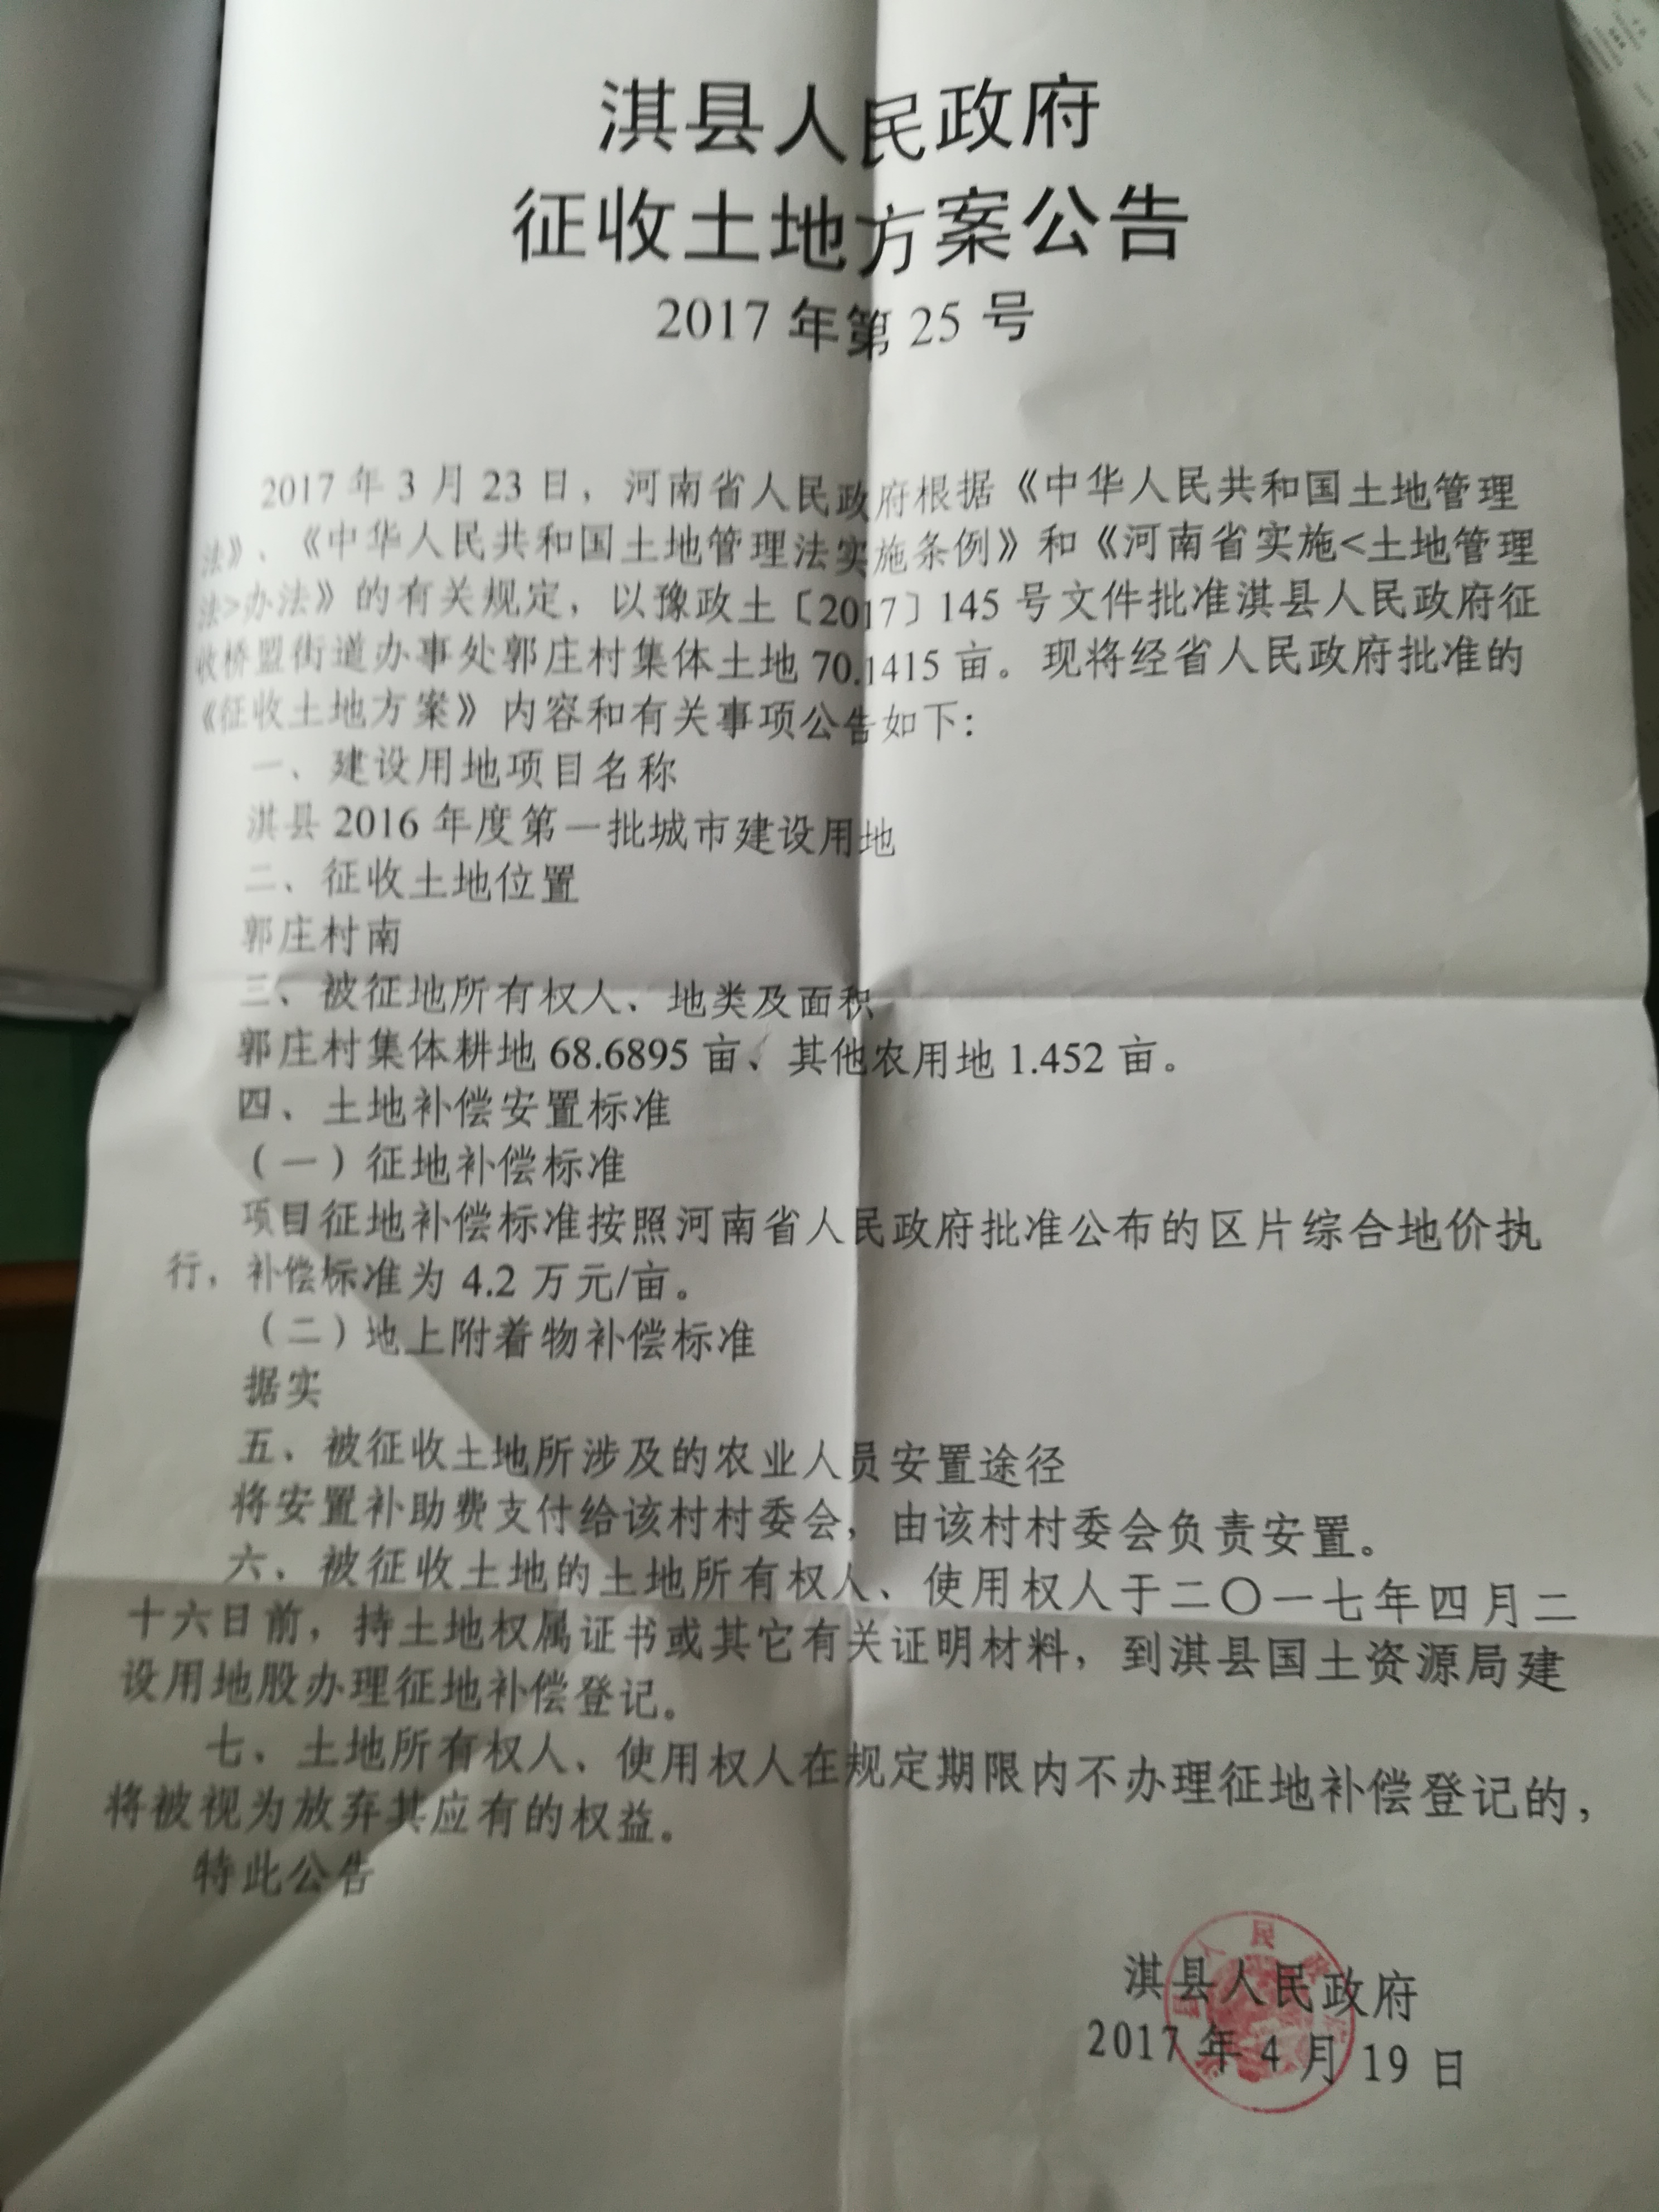 淇县人民政府
征收土地方案公告
2017 年第 25 号
2017 年 3 月 23 日，河南省人民政府根据《中华人民共和国土地管理
法》、《中华人民共和国土地管理法实施条例》和《河南省实施<土地管理
法>办法》的有关规定，以豫政土〔2017〕145 号文件批准淇县人民政府征
收桥盟街道办事处郭庄村集体土地 70.1415 亩。现将经省人民政府批准的
《征收土地方案》内容和有关事项公告如下：
一、建设用地项目名称
淇县 2016 年度第一批城市建设用地
二、征收土地位置
郭庄村南
三、被征地所有权人、地类及面积
郭庄村集体耕地 68.6895 亩、其他农用地 1.452 亩。
四、土地补偿安置标准
（一）征地补偿标准
项目征地补偿标准按照河南省人民政府批准公布的区片综合地价执
行，补偿标准为 4.2 万元/亩。
（二）地上附着物补偿标准
据实
五、被征收土地所涉及的农业人员安置途径
将安置补助费支付给该村村委会，由该村村委会负责安置。
六、被征收土地的土地所有权人、使用权人于二〇一七年四月二
十六日前，持土地权属证书或其它有关证明材料，到淇县国土资源局建
设用地股办理征地补偿登记。
七、土地所有权人、使用权人在规定期限内不办理征地补偿登记的，
将被视为放弃其应有的权益。
特此公告
淇县人民政府
2017 年 4 月 19 日